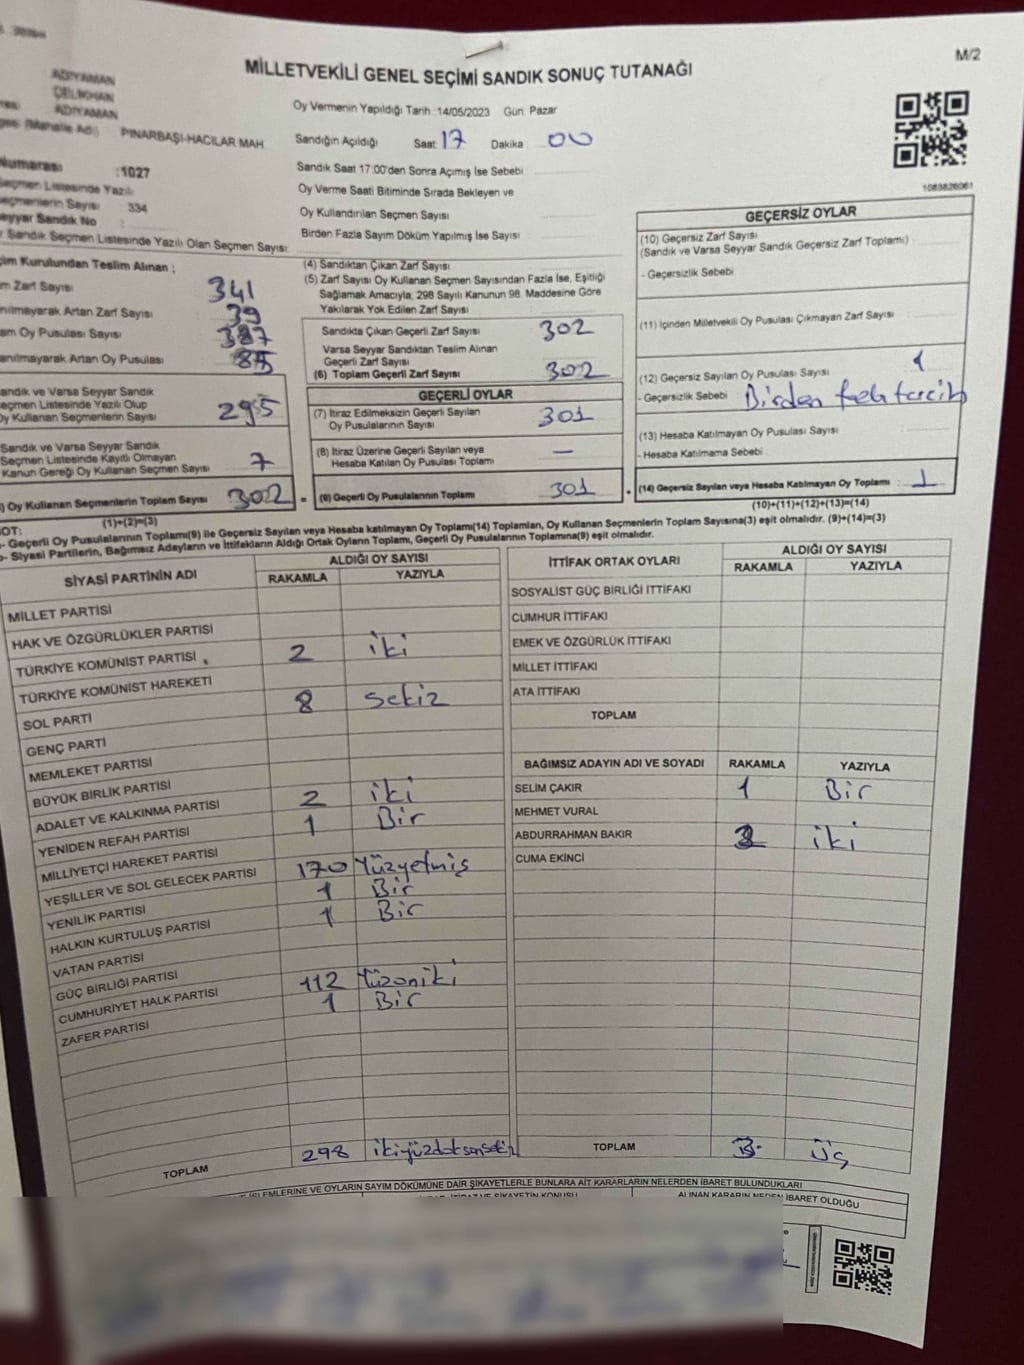 M/2
MİLLETVEKİLİ GENEL SEÇİMİ SANDIK SONUÇ TUTANAĞI
ADIYAMAN
ÇELİKHAN
ADIYAMAN
(Mahalle Adı) PINARBAŞI-HACILAR MAH
Numarası :1027
Seçmen Listesinde Yazılı
Seçmenlerin Sayısı 334
Seyyar Sandık No :
Sandık Seçmen Listesinde Yazılı Olan Seçmen Sayısı:
Oy Vermenin Yapıldığı Tarih :14/05/2023 Gün: Pazar
Sandığın Açıldığı Saat 17 Dakika 00
Sandık Saat 17:00'den Sonra Açımış İse Sebebi
Oy Verme Saati Bitiminde Sırada Bekleyen ve
Oy Kullandırılan Seçmen Sayısı
Birden Fazla Sayım Döküm Yapılmış İse Sayısı
1083826061
Kurulundan Teslim Alınan ;
Zarf Sayısı 341
Artan Zarf Sayısı 39
Oy Pusulası Sayısı 387
Artan Oy Pusulası 85
Sandık ve Varsa Seyyar Sandık
Seçmen Listesinde Yazılı Olup
Oy Kullanan Seçmenlerin Sayısı 295
Sandık ve Varsa Seyyar Sandık
Seçmen Listesinde Kayıtlı Olmayan
Kanun Gereği Oy Kullanan Seçmen Sayısı 7
Oy Kullanan Seçmenlerin Toplam Sayısı 302 =
(1)+(2)=(3)
(4) Sandıktan Çıkan Zarf Sayısı
(5) Zarf Sayısı Oy Kullanan Seçmen Sayısından Fazla İse, Eşitliği
Sağlamak Amacıyla, 298 Sayılı Kanunun 98. Maddesine Göre
Yakılarak Yok Edilen Zarf Sayısı
Sandıkta Çıkan Geçerli Zarf Sayısı 302
Varsa Seyyar Sandıktan Teslim Alınan
Geçerli Zarf Sayısı
(6) Toplam Geçerli Zarf Sayısı 302
GEÇERLİ OYLAR
(7) İtiraz Edilmeksizin Geçerli Sayılan
Oy Pusulalarının Sayısı 301
(8) İtiraz Üzerine Geçerli Sayılan veya
Hesaba Katılan Oy Pusulası Toplamı —
(9) Geçerli Oy Pusulalarının Toplamı 301
GEÇERSİZ OYLAR
(10) Geçersiz Zarf Sayısı
(Sandık ve Varsa Seyyar Sandık Geçersiz Zarf Toplamı)
- Geçersizlik Sebebi
(11) İçinden Milletvekili Oy Pusulası Çıkmayan Zarf Sayısı
(12) Geçersiz Sayılan Oy Pusulası Sayısı 1
- Geçersizlik Sebebi Birden fazla tercih
(13) Hesaba Katılmayan Oy Pusulası Sayısı
- Hesaba Katılmama Sebebi
(14) Geçersiz Sayılan veya Hesaba Katılmayan Oy Toplamı : 1
(10)+(11)+(12)+(13)=(14)
NOT:
- Geçerli Oy Pusulalarının Toplamı(9) ile Geçersiz Sayılan veya Hesaba katılmayan Oy Toplamı(14) Toplamları, Oy Kullanan Seçmenlerin Toplam Sayısına(3) eşit olmalıdır. (9)+(14)=(3)
- Siyasi Partilerin, Bağımsız Adayların ve İttifakların Aldığı Ortak Oyların Toplam, Geçerli Oy Pusulalarının Toplamına(9) eşit olmalıdır.
SİYASİ PARTİNİN ADI ALDIĞI OY SAYISI
RAKAMLA YAZIYLA
MİLLET PARTİSİ
HAK VE ÖZGÜRLÜKLER PARTİSİ
TÜRKİYE KOMÜNİST PARTİSİ 2 iki
TÜRKİYE KOMÜNİST HAREKETİ
SOL PARTİ 8 sekiz
GENÇ PARTİ
MEMLEKET PARTİSİ
BÜYÜK BİRLİK PARTİSİ
ADALET VE KALKINMA PARTİSİ 2 iki
YENİDEN REFAH PARTİSİ 1 Bir
MİLLİYETÇİ HAREKET PARTİSİ
YEŞİLLER VE SOL GELECEK PARTİSİ 170 Yüzyetmiş
YENİLİK PARTİSİ 1 Bir
HALKIN KURTULUŞ PARTİSİ 1 Bir
VATAN PARTİSİ
GÜÇ BİRLİĞİ PARTİSİ
CUMHURİYET HALK PARTİSİ 112 Yüzoniki
ZAFER PARTİSİ 1 Bir
TOPLAM 298 ikiyüzdoksansekiz
İTTİFAK ORTAK OYLARI ALDIĞI OY SAYISI
RAKAMLA YAZIYLA
SOSYALİST GÜÇ BİRLİĞİ İTTİFAKI
CUMHUR İTTİFAKI
EMEK VE ÖZGÜRLÜK İTTİFAKI
MİLLET İTTİFAKI
ATA İTTİFAKI
TOPLAM
BAĞIMSIZ ADAYIN ADI VE SOYADI RAKAMLA YAZIYLA
SELİM ÇAKIR 1 Bir
MEHMET VURAL
ABDURRAHMAN BAKIR 2 iki
CUMA EKİNCİ
TOPLAM 3 üç
İŞLEMLERİNE VE OYLARIN SAYIM DÖKÜMÜNE DAİR ŞİKAYETLERLE BUNLARA AİT KARARLARIN NELERDEN İBARET BULUNDUKLARI
ALINAN KARARIN NEDEN İBARET OLDUĞU